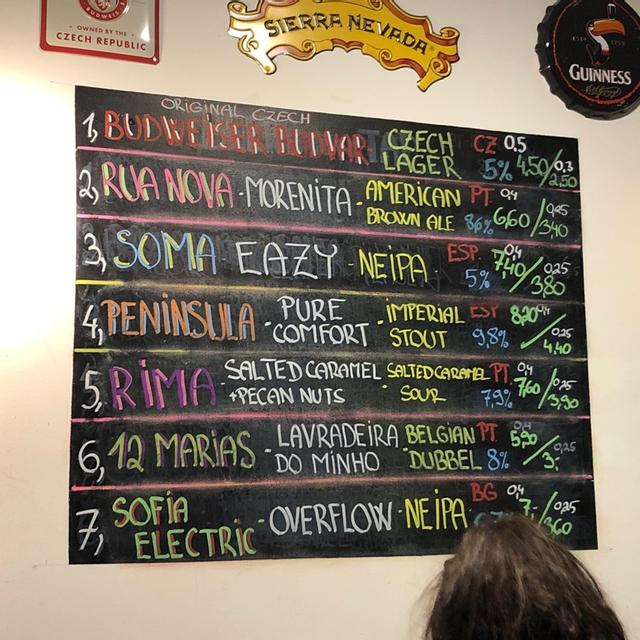 BUDWEISER
OWNED BY THE
CZECH REPUBLIC
SIERRA NEVADA
GUINNESS
ORIGINAL CZECH
1, BUDWEISER BUDVAR CZECH LAGER CZ 5% 0,5 4,50/0,3 2,50
2, RUA NOVA - MORENITA - AMERICAN BROWN ALE PT 8,6% 0,4 6,60/0,25 3,40
3, SOMA EAZY - NEIPA ESP. 5% 0,4 7,40/0,25 3,80
4, PENINSULA - PURE COMFORT - IMPERIAL STOUT EST 9,8% 8,20 0,4/0,25 4,40
5, RIMA - SALTED CARAMEL +PECAN NUTS SALTED CARAMEL SOUR PT 7,9% 0,4 7,60/0,25 3,90
6, 12 MARIAS - LAVRADEIRA DO MINHO BELGIAN DUBBEL PT 8% 0,4 5,90/0,25 3,-
7, SOFIA ELECTRIC - OVERFLOW - NEIPA BG 0,4 7,-/0,25 3,60